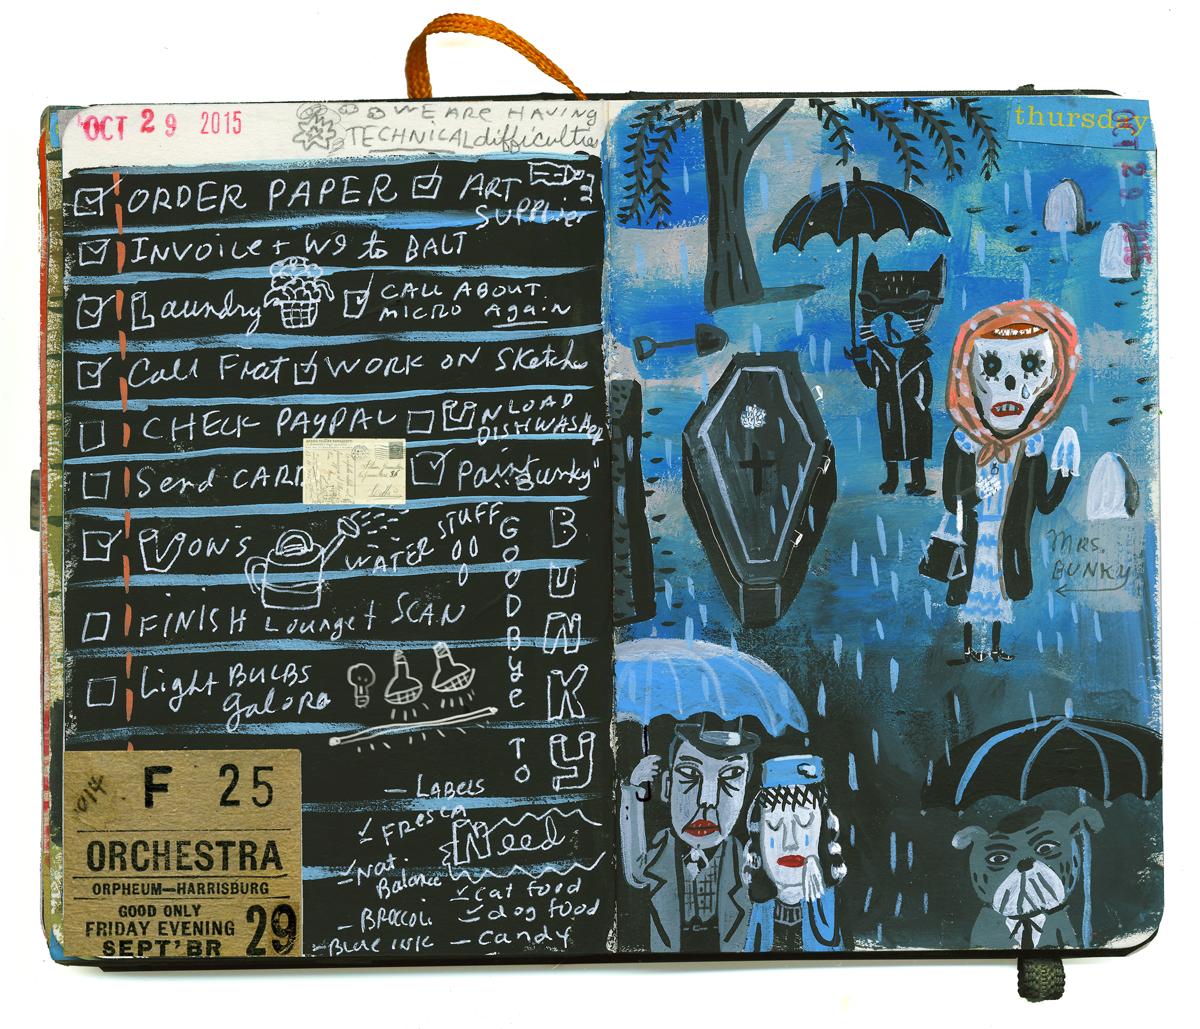 OCT 29 2015
WE ARE HAVING
TECHNICAL difficulties
ORDER PAPER
ART
SUPPlies
INVOICE + W9 to BALT
Laundry
CALL ABOUT
MICRO Again
Call Frat
WORK ON SKetches
CHECK PAYPAL
UNLOAD
DISHWASHER
Send CARD
Paint "Bunky"
VON'S
WATER STUFF
FINISH Lounge + SCAN
Light BULBS
galore
GOODBYE TO
BUNKY
– LABELS
FRESCA
Need
– Nat.
Balance
cat food
– BROCCOLI
dog food
– Blue INK
– Candy
014
F 25
ORCHESTRA
ORPHEUM—HARRISBURG
GOOD ONLY
FRIDAY EVENING
SEPT'BR 29
thursday
MRS.
BUNKY